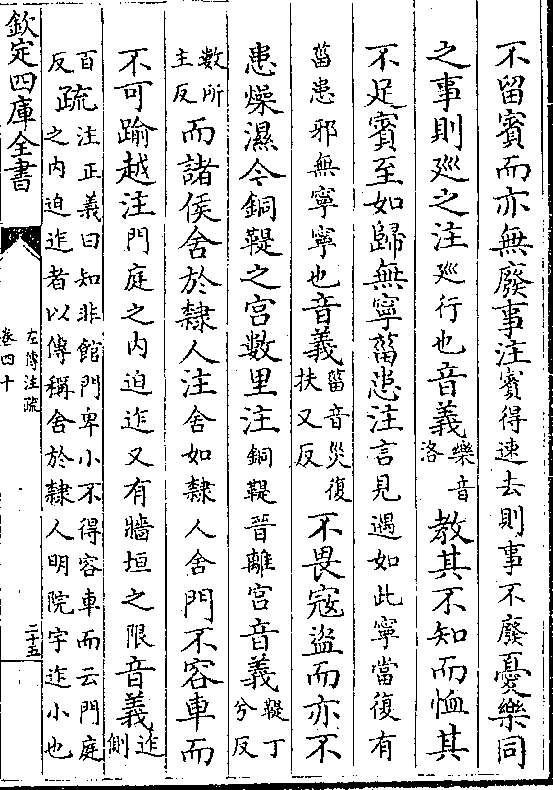 不留賓而亦無廢事注賓得速去則事不廢憂樂同
之事則廵之注廵行也音義樂音洛教其不知而恤其
不足賓至如歸無寧菑患注言見遇如此寧當復有
菑患邪無寧寧也音義菑音災復扶又反不畏寇盜而亦不
患燥濕今銅鞮之宫數里注銅鞮晉離宫音義鞮丁兮反
數所主反而諸侯舍於隸人注舍如隸人舍門不容車而
不可踰越注門庭之内迫迮又有牆垣之限音義迮側
百反疏注正義曰知非館門卑小不得容車而云門庭之内迫迮者以傳稱舍於隸人明院宇迮小也
欽定四庫全書
左傳注疏
卷四十
二十五